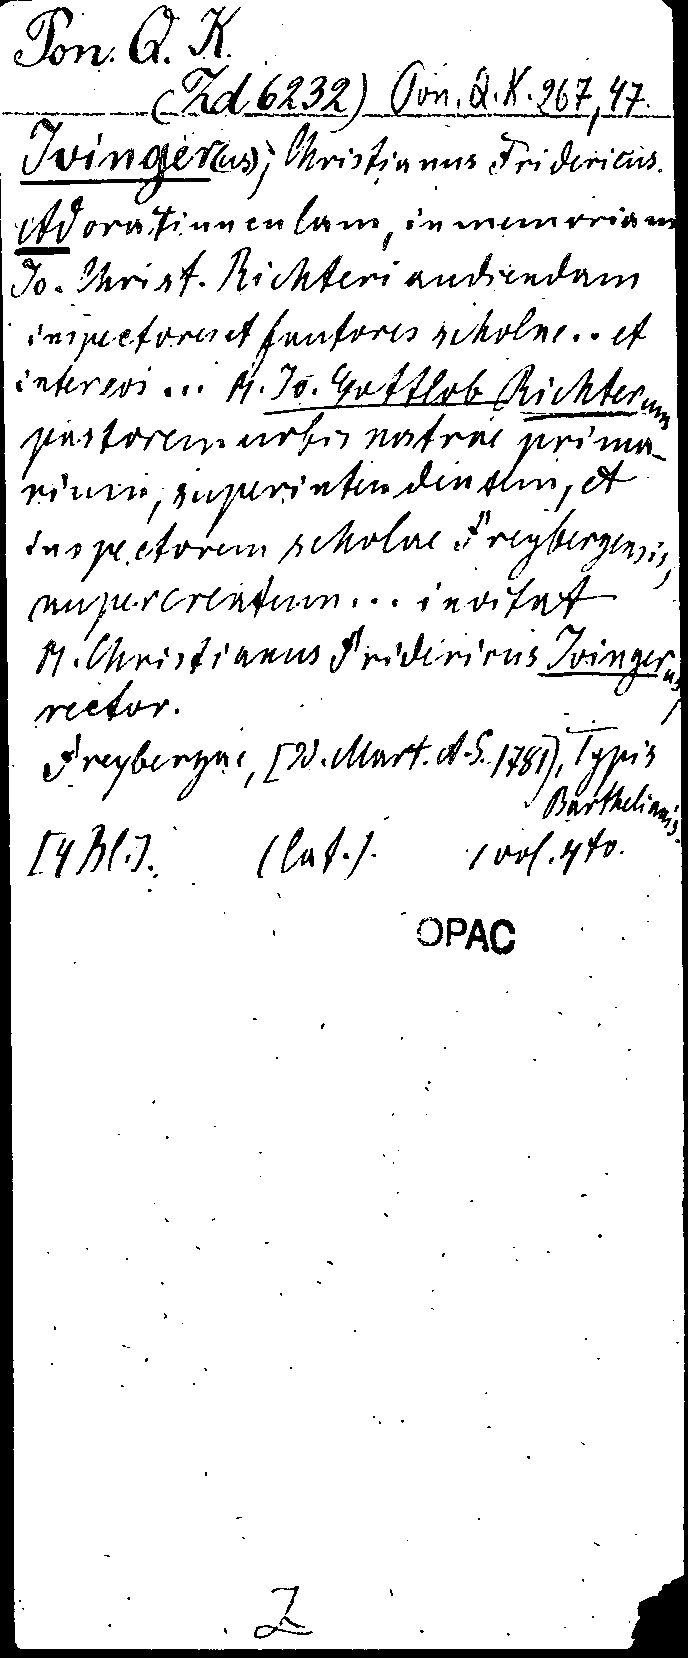 Pon. Q. K.
(Zd 6232) Pon. Q. K. 267,47.
Ivinger(us), Christianus Fridericus.
Ad oratiunculam, in memoriam
Io. Christ. Richteri audiendam
inspectores et fautores scholae .. et
... M. Io. Gottlob Richterum
pastorem urbis nostrae prima-
rium, superintendentem, et
inspectorem scholae Freybergensis,
nuper creatum ... invitat
M. Christianus Fridericus Ivingerus,
rector.
Freybergae, [d. Mart. A. S. 1781], Typis
Barthelianis.
[4 Bl.]. (lat.). 1 vol. 4to.
OPAC
Z